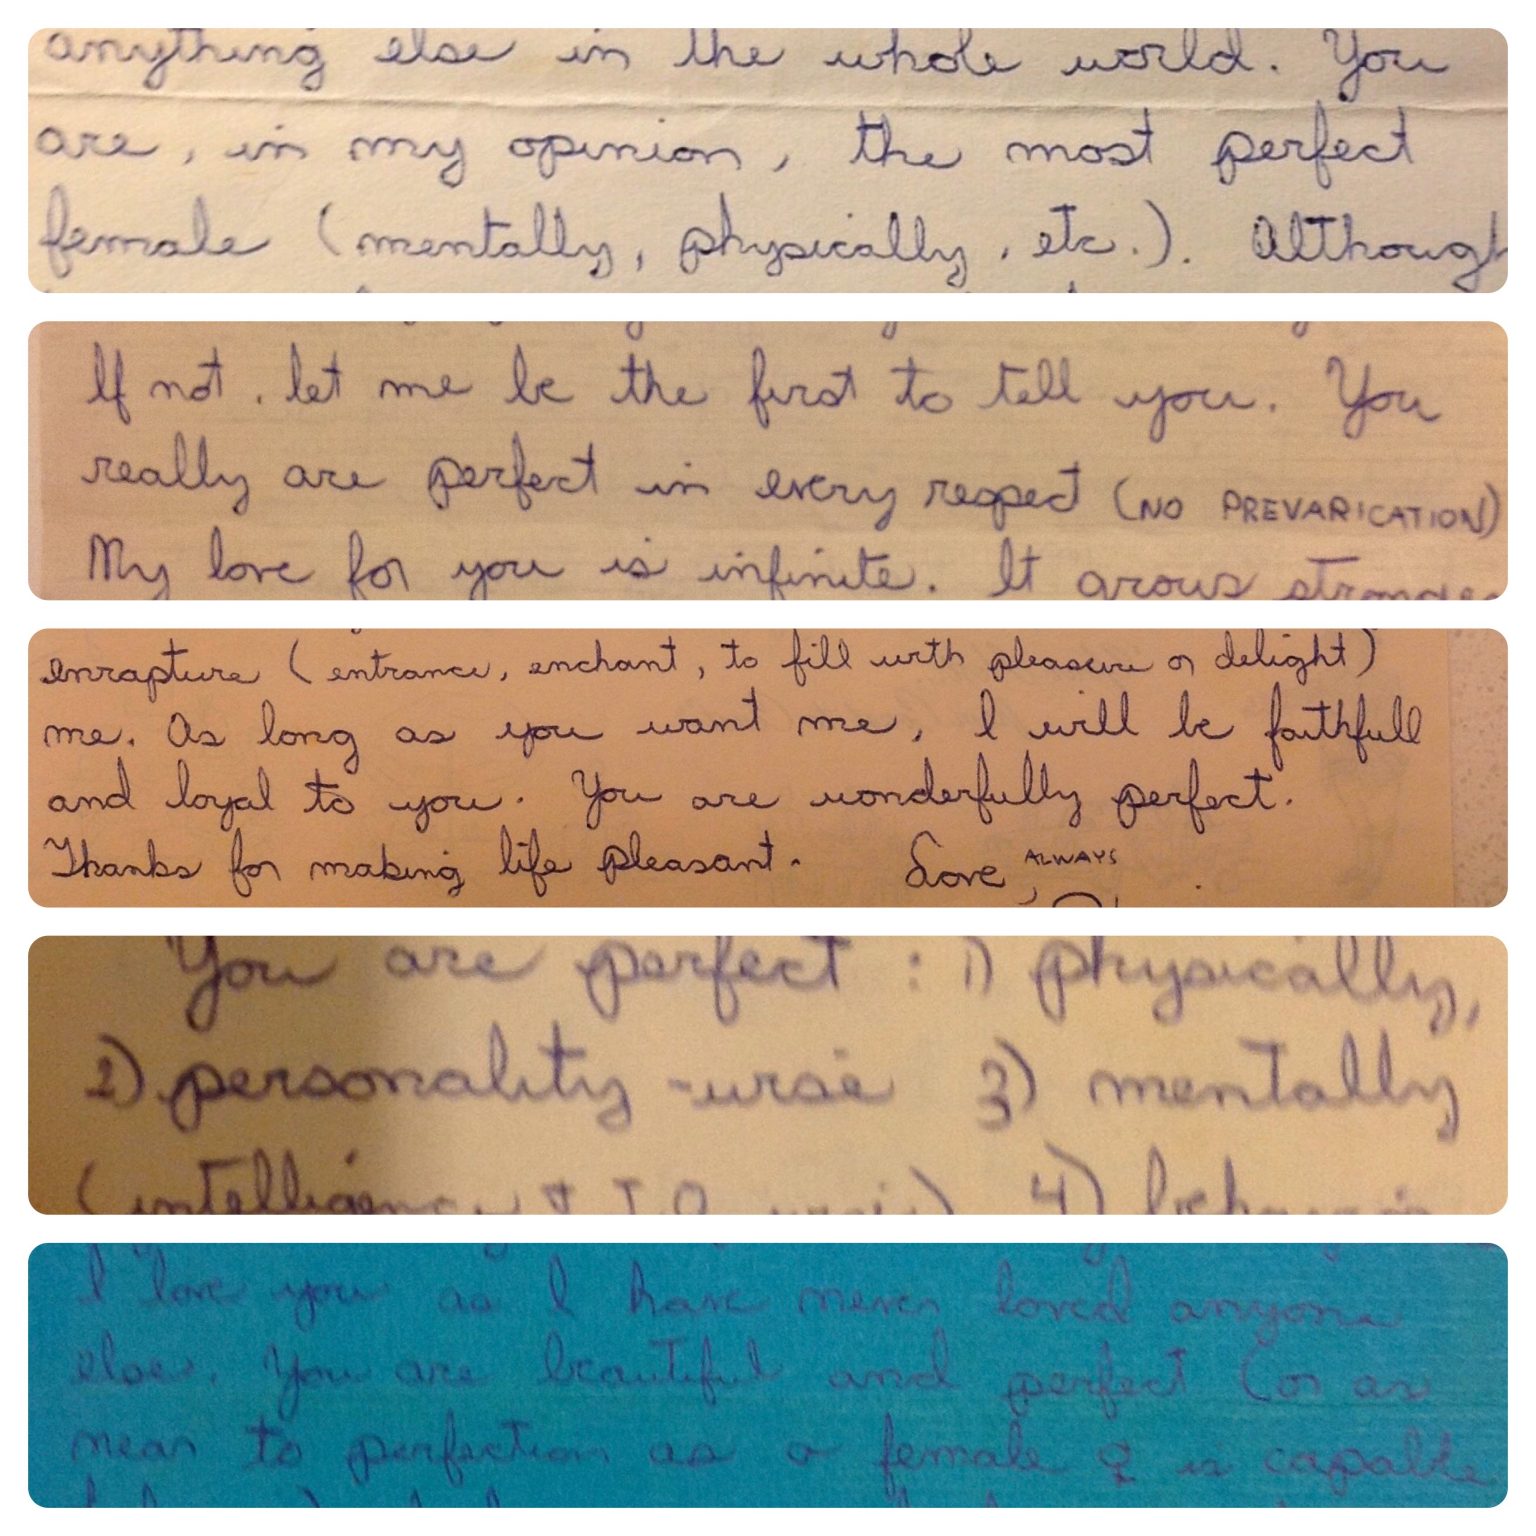 anything else in the whole world. You
are, in my opinion, the most perfect
female (mentally, physically, etc.). Although
If not, let me be the first to tell you. You
really are perfect in every respect (NO PREVARICATION)
My love for you is infinite. It grows stronger
enrapture (entrance, enchant, to fill with pleasure or delight)
me. As long as you want me, I will be faithfull
and loyal to you. You are wonderfully perfect.
Thanks for making life pleasant. Love, ALWAYS
You are perfect: 1) physically,
2) personality-wise 3) mentally
(intelligency & I.Q. wise) 4) behavior
I love you as I have never loved anyone
else. You are beautiful and perfect (or as
near to perfection as a female ♀ is capable